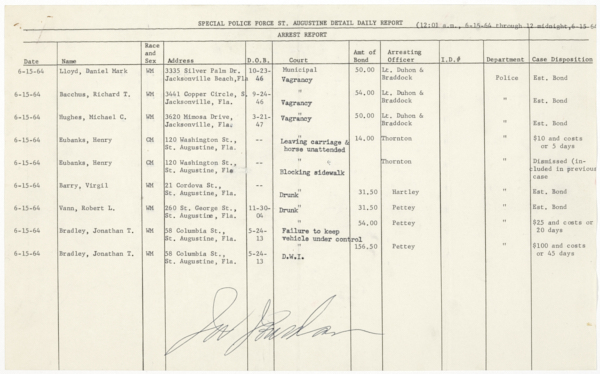 SPECIAL POLICE FORCE ST. AUGUSTINE DETAIL DAILY REPORT (12:01 a.m., 6-15-64 through 12 midnight, 6-15-64
ARREST REPORT
Date Name Race and Sex Address D.O.B. Court Amt of Bond Arresting Officer I.D.# Department Case Disposition
6-15-64 Lloyd, Daniel Mark WM 3335 Silver Palm Dr. 10-23- Municipal 50.00 Lt. Duhon &
Jacksonville Beach,Fla 46 Vagrancy Braddock Police Est. Bond
6-15-64 Bacchus, Richard T. WM 3441 Copper Circle, S 9-24- " 54.00 Lt. Duhon & "
Jacksonville, Fla. 46 Vagrancy Braddock Est. Bond
6-15-64 Hughes, Michael C. WM 3620 Mimosa Drive, 3-21- " 50.00 Lt. Duhon & "
Jacksonville, Fla. 47 Vagrancy Braddock Est. Bond
6-15-64 Eubanks, Henry CM 120 Washington St., -- Leaving carriage & 14.00 Thornton " $10 and costs
St. Augustine, Fla. horse unattended or 5 days
6-15-64 Eubanks, Henry CM 120 Washington St., -- " Thornton Dismissed (in-
St. Augustine, Fla Blocking sidewalk cluded in previous
case
6-15-64 Barry, Virgil WM 21 Cordova St., -- "
St. Augustine, Fla. Drunk 31.50 Hartley " Est. Bond
6-15-64 Vann, Robert L. WM 260 St. George St., 11-30- Drunk 31.50 Pettey " Est. Bond
St. Augustine, Fla. 04
" 54.00 Pettey " $25 and costs or
6-15-64 Bradley, Jonathan T. WM 58 Columbia St., 5-24- Failure to keep 20 days
St. Augustine, Fla. 13 vehicle under control
" 156.50 Pettey " $100 and costs
6-15-64 Bradley, Jonathan T. WM 58 Columbia St., 5-24- D.W.I. or 45 days
St. Augustine, Fla. 13